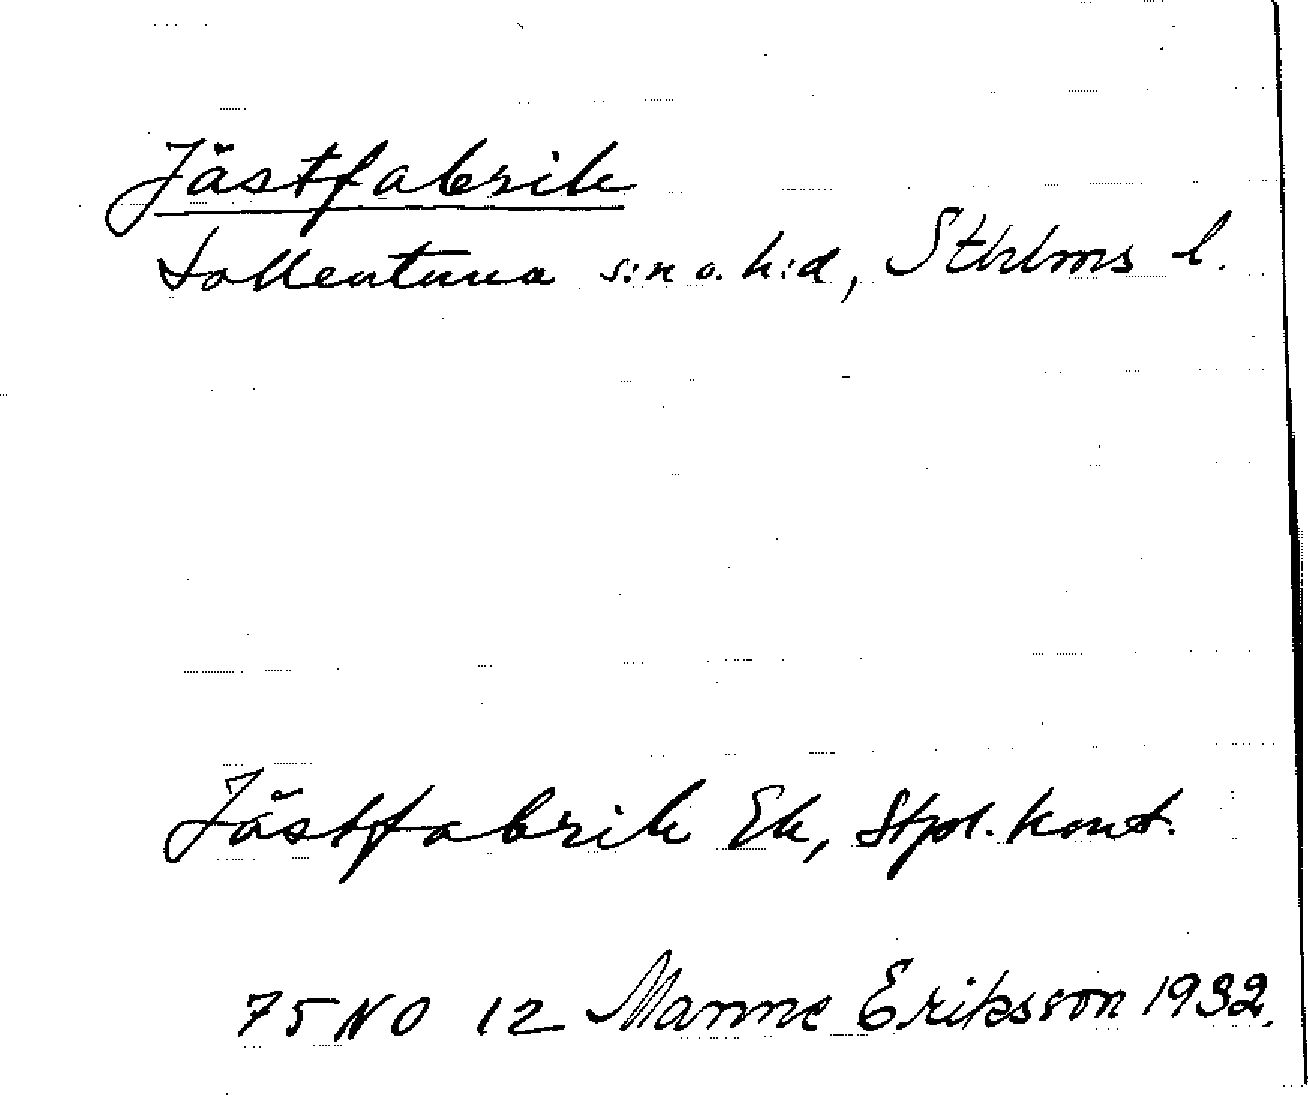 Jästfabrik
Sollentuna s:n o. h:d, Sthlms l.
Jästfabrik Ek, Stpl. kont.
75 NO 12 Manne Eriksson 1932.